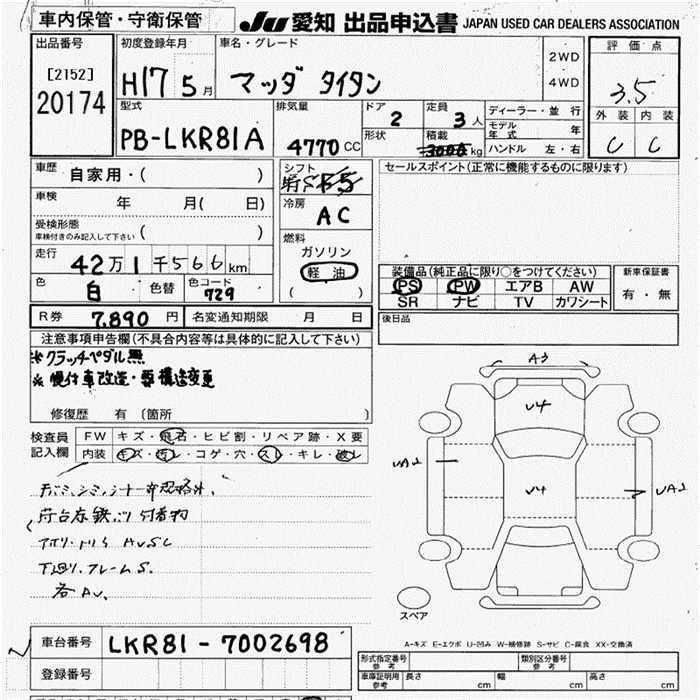 車内保管・守衛保管
JU 愛知 出品申込書 JAPAN USED CAR DEALERS ASSOCIATION
出品番号
[2152]
20174
初度登録年月
H17 5月
車名・グレード
マツダ タイタン
2WD
4WD
評価点
3.5
外装 内装
C C
型式
PB-LKR81A
排気量
4770 CC
ドア
2
形状
定員
3人
積載
3000 kg
ディーラー・並行
モデル年式 年
ハンドル 左・右
車歴
自家用・( )
車検
年 月( 日)
受検形態
車検付きのみ記入して下さい ( )
走行
42万1千566km
色
白
色替
色コード
729
シフト
F5
冷房
AC
燃料
ガソリン
軽油
( )
セールスポイント(正常に機能するものに限ります)
装備品(純正品に限り○をつけてください)
PS PW エアB AW
SR ナビ TV カワシート
新車保証書
有・無
R券 7,890円
名変通知期限 月 日
後日品
注意事項申告欄(不具合内容等は具体的に記入して下さい)
※クラッチペダル無
修復歴 有 (箇所 )
検査員
記入欄
FW キズ・飛石・ヒビ割・リペア跡・X要
内装 キズ・汚レ・コゲ・穴・スレ・キレ・破レ
下廻リ、フレームS.
各AU.
A3
U4
U4
UA2
UA2
スペア
A-キズ E-エクボ U-凹み W-補修跡 S-サビ C-腐食 XX-交換済
車台番号
LKR81-7002698
登録番号
形式指定番号
参考
類別区分番号
参考
車庫証明用
参考
長さ cm
幅 cm
高さ cm